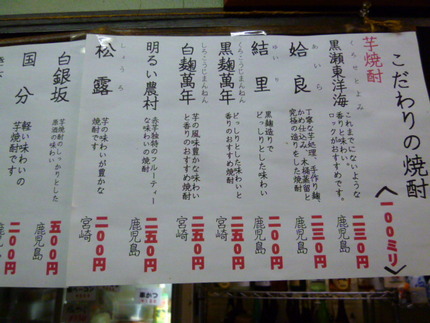 こだわりの焼酎
〈一〇〇ミリ〉
芋焼酎
くろせとよみ
黒瀬東洋海
これまでにないような
香りと味わい。
ロックがおすすめです。
二三〇円
あいら
姶良
丁寧な芋処理、手作り麹
かめ仕込み、木桶蒸留と
究極の造りをした焼酎
鹿児島
二三〇円
ゆいり
結里
黒麹造りで
どっしりとした味わい
鹿児島
一〇〇円
くろこうじまんねん
黒麹萬年
どっしりとした味わいと
香りのおすすめ焼酎
宮崎
二五〇円
しろこうじまんねん
白麹萬年
芋の風味豊かな味わい
と香りのおすすめ焼酎
宮崎
二五〇円
明るい農村
赤芋独特のフルーティー
な味わいの焼酎
鹿児島
二五〇円
しょうろ
松露
芋の味わいが豊かな
焼酎です
宮崎
二〇〇円
白銀坂
芋焼酎のしっかりとした
原酒の味わい
鹿児島
五〇〇円
国分
軽い味わいの
芋焼酎です
鹿児島
二〇〇円